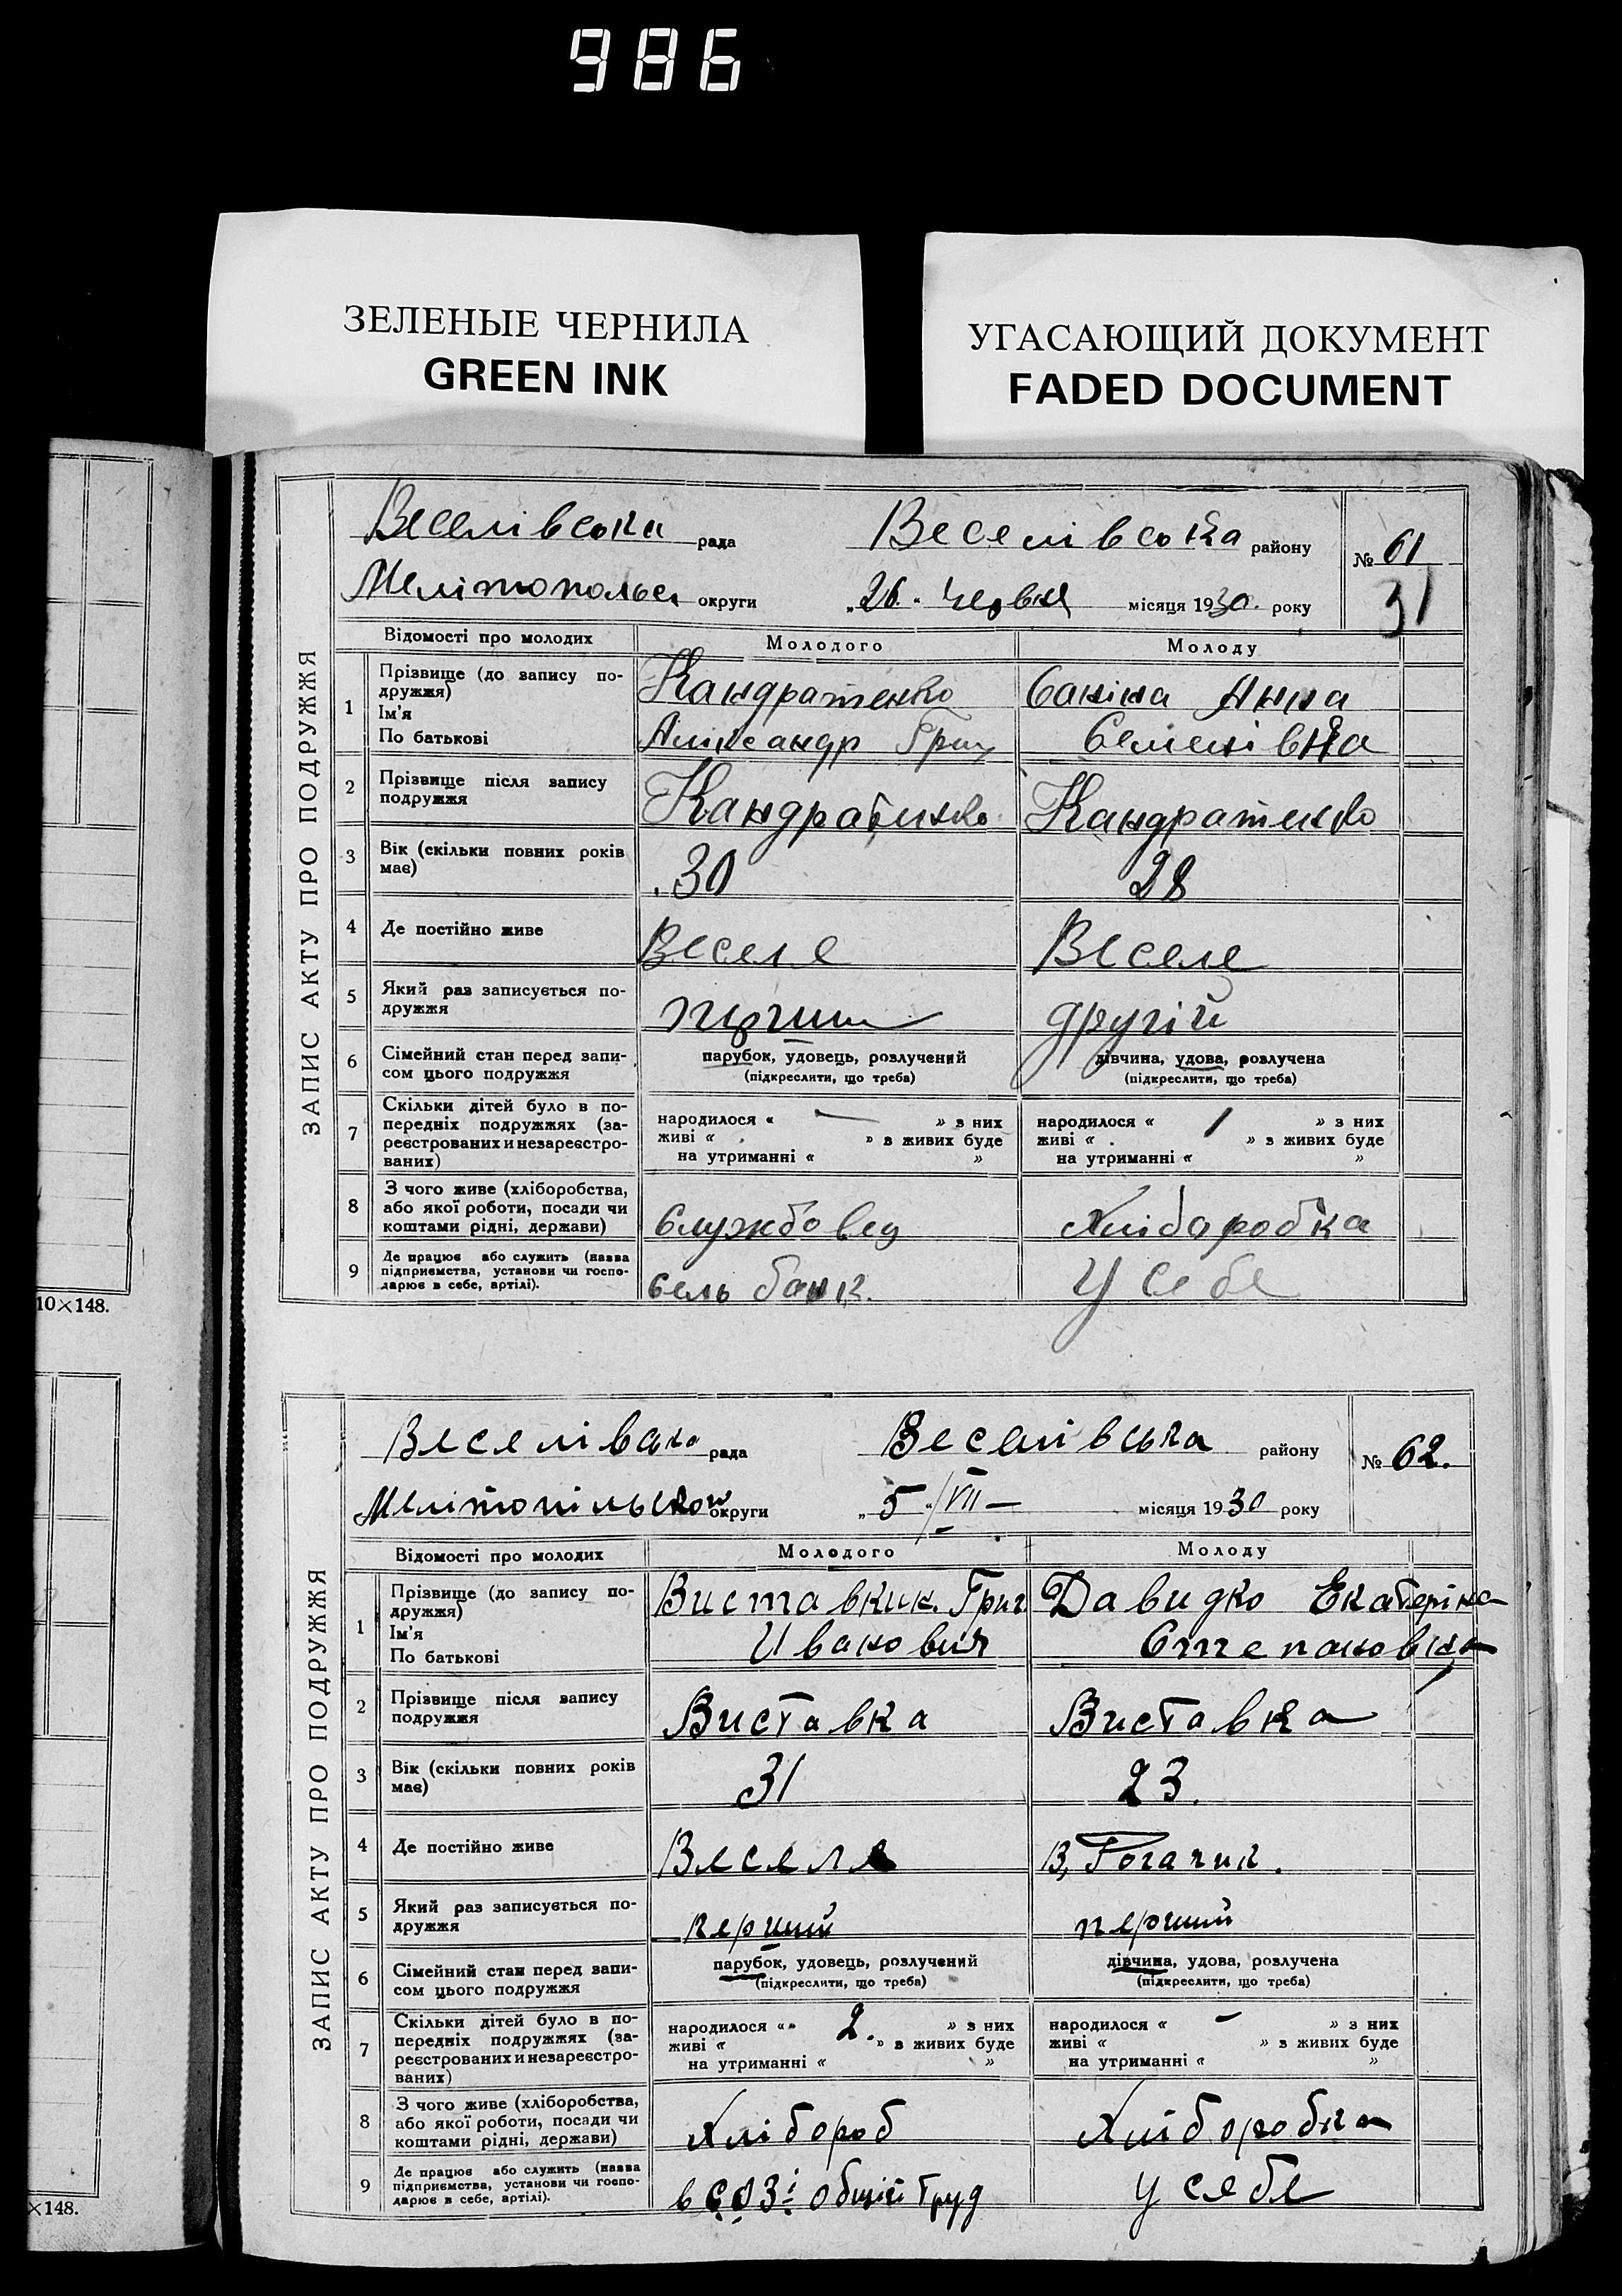 986
ЗЕЛЕНЫЕ ЧЕРНИЛА
GREEN INK
УГАСАЮЩИЙ ДОКУМЕНТ
FADED DOCUMENT
10×148.
×148.
ЗАПИС АКТУ ПРО ПОДРУЖЖЯ
Веселівська рада Веселівська району № 61
округи „26" Червня місяця 1930. року 31
Відомості про молодих Молодого Молоду
1 Прізвище (до запису подружжя) Кандратенко Саніна Анна
Ім'я
По батькові Александр Григ Семенівна
2 Прізвище після запису подружжя Кандратенко Кандратенко
3 Вік (скільки повних років має) 30 28
4 Де постійно живе Веселе Веселе
5 Який раз записується подружжя другій
6 Сімейний стан перед записом цього подружжя парубок, удовець, розлучений дівчина, удова, розлучена
(підкреслити, що треба) (підкреслити, що треба)
7 Скільки дітей було в попередніх подружжях (зареєстрованих и незареєстрованих) народилося « — » з них народилося « 1 » з них
живі « » з живих буде живі « » з живих буде
на утриманні « » на утриманні « »
8 З чого живе (хліборобства, або якої роботи, посади чи коштами рідні, держави) Службовец Хлібаробка
9 Де працює або служить (назва підприємства, установи чи господарює в себе, артілі). Сель банк. У себе
ЗАПИС АКТУ ПРО ПОДРУЖЖЯ
рада Веселівська району № 62.
округи „5"/VII — місяця 1930 року
Відомості про молодих Молодого Молоду
1 Прізвище (до запису подружжя) Григ Давидко Екатеріна
Ім'я
По батькові Иванович Степановна
2 Прізвище після запису подружжя Виставка Виставка
3 Вік (скільки повних років має) 31 23.
4 Де постійно живе Веселе В, Рогачик.
5 Який раз записується подружжя перший перший
6 Сімейний стан перед записом цього подружжя парубок, удовець, розлучений дівчина, удова, розлучена
(підкреслити, що треба) (підкреслити, що треба)
7 Скільки дітей було в попередніх подружжях (зареєстрованих и незареєстрованих) народилося « 2. » з них народилося « – » з них
живі « » з живих буде живі « » з живих буде
на утриманні « » на утриманні « »
8 З чого живе (хліборобства, або якої роботи, посади чи коштами рідні, держави) Хлібороб Хліборобка
9 Де працює або служить (назва підприємства, установи чи господарює в себе, артілі). в СОЗі общій Труд у себе